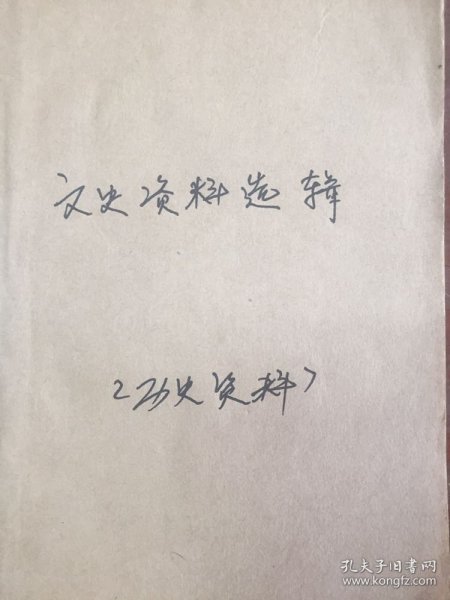 文史资料选辑
〈历史资料〉
孔夫子旧书网
www.kongfz.com